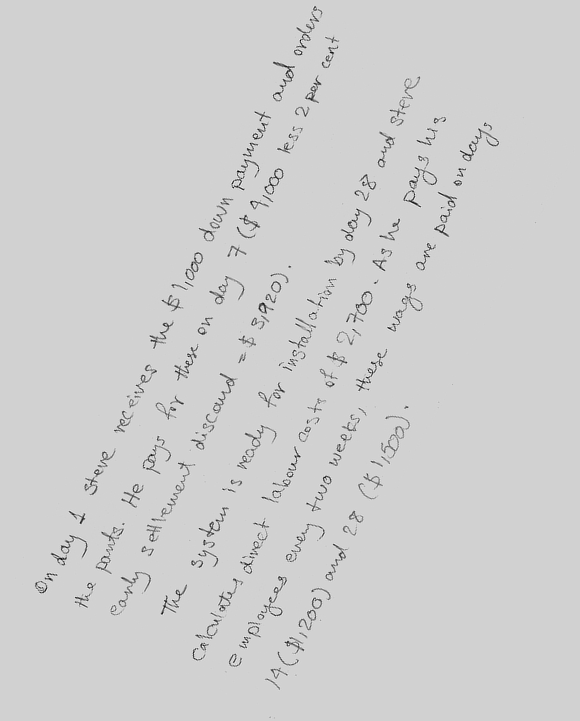 On day 1 Steve receives the $1,000 down payment and orders
the parts. He pays for these on day 7 ($4,000 less 2 per cent
early settlement discound = $3,920).
The system is ready for installation by day 28 and steve
calculates direct labour costs of $2,700. As he pays his
employees every two weeks, these wags are paid on days
14 ($1,200) and 28 ($1,500).